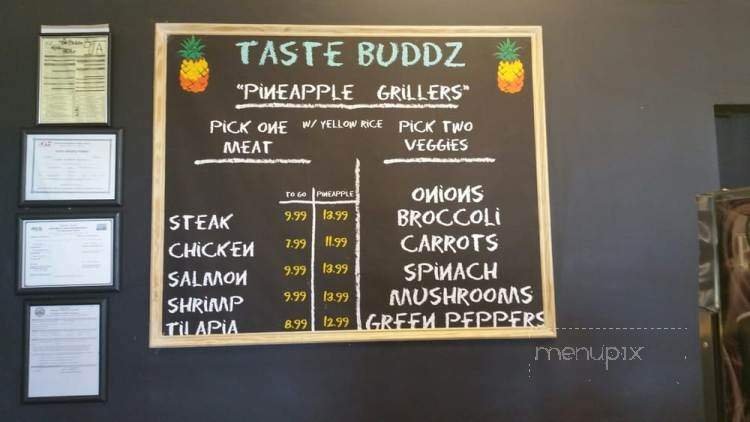 TASTE BUDDZ
"PINEAPPLE GRILLERS"
PICK ONE MEAT
W/ YELLOW RICE
PICK TWO VEGGIES
TO GO PINEAPPLE
STEAK 9.99 13.99
CHICKEN 7.99 11.99
SALMON 9.99 13.99
SHRIMP 9.99 13.99
TILAPIA 8.99 12.99
ONIONS
BROCCOLI
CARROTS
SPINACH
MUSHROOMS
GREEN PEPPERS
menupix